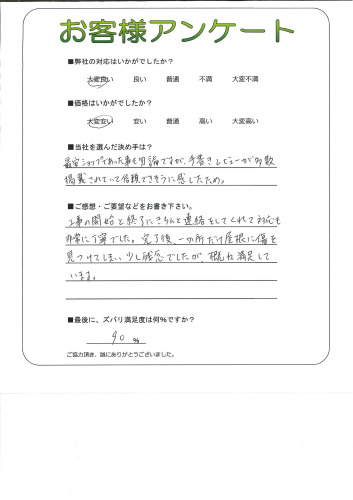 お客様アンケート
■弊社の対応はいかがでしたか？
大変良い 良い 普通 不満 大変不満
■価格はいかがでしたか？
大変安い 安い 普通 高い 大変高い
■当社を選んだ決め手は？
最安ショップであった事も勿論ですが、手書きレビューが多数
掲載されていて信頼できそうに感じたため。
■ご感想・ご要望などをお書き下さい。
工事の開始と終了にきちんと連絡をしてくれて対応も
非常に丁寧でした。完了後、一か所だけ屋根に傷を
見つけてしまい少し残念でしたが、概ね満足して
います。
■最後に、ズバリ満足度は何％ですか？
90 %
ご協力頂き、誠にありがとうございました。